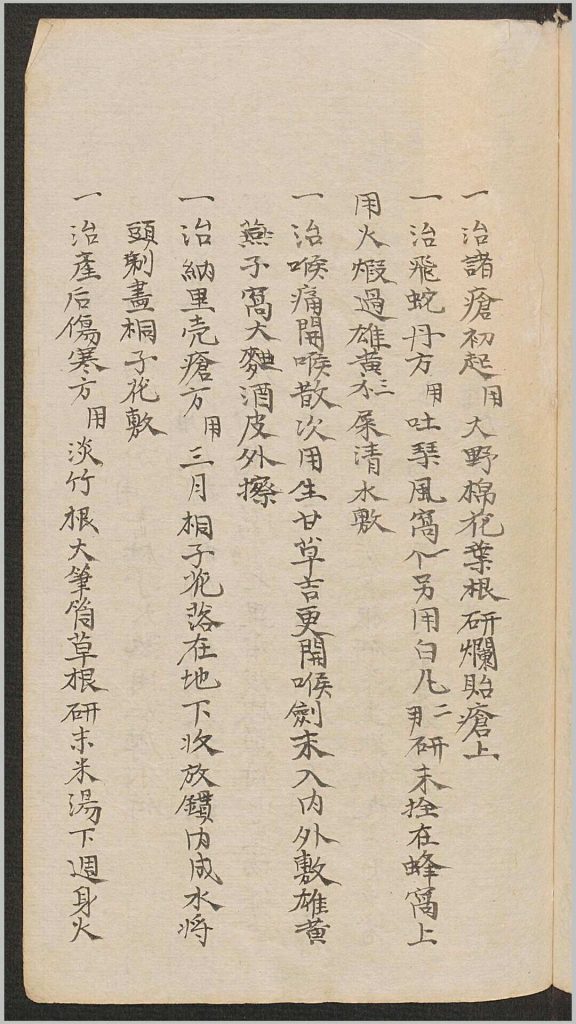 一治諸瘡初起用大野棉花葉根研爛貼瘡上
一治飛蛇丹方用吐琹風窩個另用白凡二研末拴在蜂窩上
用火煆過雄黃三屎清水敷
一治喉痛開喉散次用生甘草吉更開喉劍末入內外敷雄黃
燕子窩大麯酒皮外擦
一治納里壳瘡方用三月桐子花落在地下收放鑵內成水將
頭剃盡桐子花敷
一治產后傷寒方用淡竹根大筆筒草根研末米湯下週身火